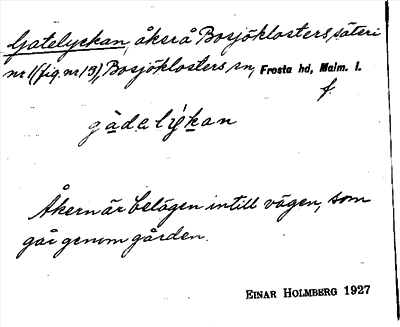 Gatelyckan, åker å Bosjöklosters säteri
nr 1 (fig. nr 19), Bosjöklosters sn, Frosta hd, Malm. l.
f
gadalykan
Åkern är belägen intill vägen, som
går genom gården.
EINAR HOLMBERG 1927